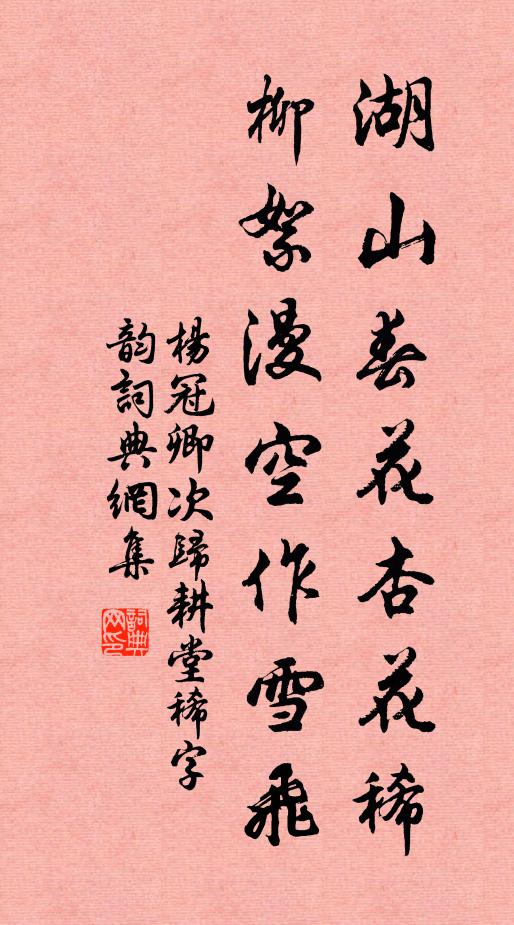 湖山春花杏花稀
柳絮漫空作雪飛
楊冠卿次歸耕堂稀字
韵詞典網集
詞典網印